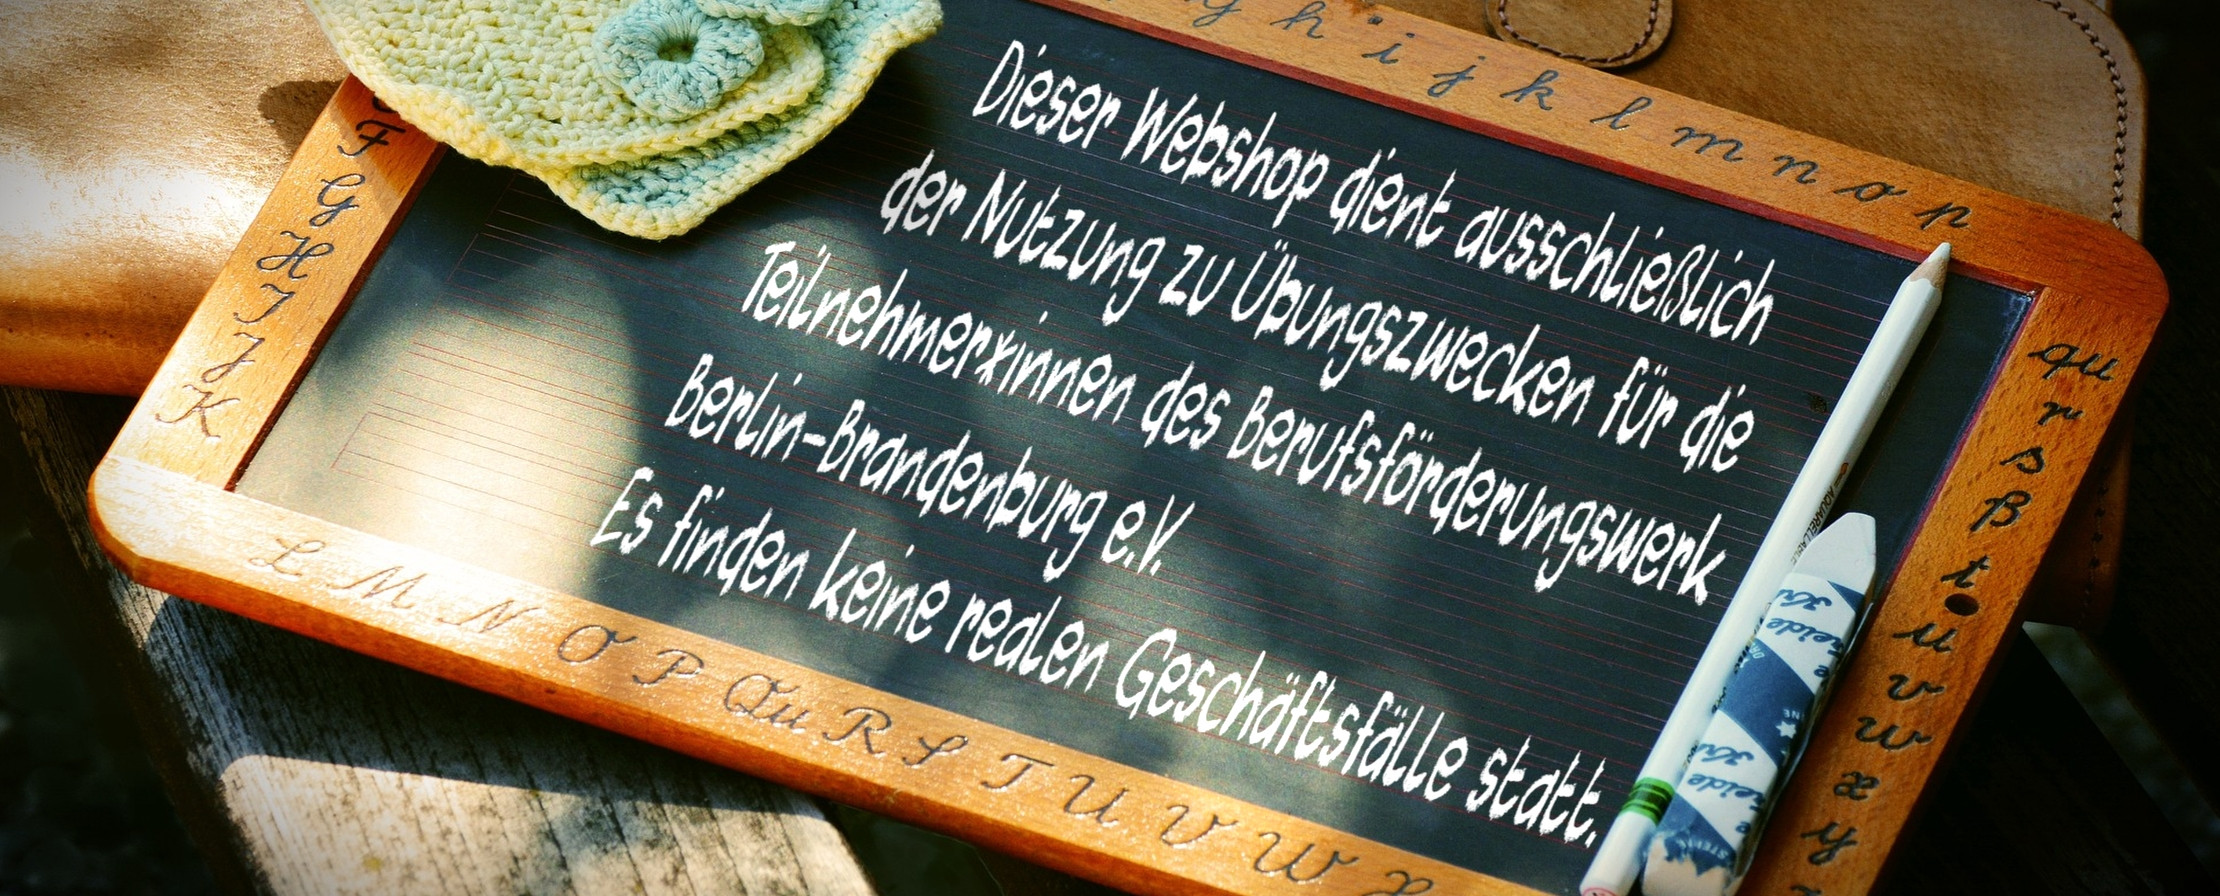 g h i j k l m n o p
Dieser Webshop dient ausschließlich
der Nutzung zu Übungszwecken für die
Teilnehmerxinnen des Berufsförderungswerk
Berlin-Brandenburg e.V.
Es finden keine realen Geschäftsfälle statt.
F
G
H
I
J
K
L M N O P Qu R S T U V W X
qu
r
s
ß
t
u
v
w
x
y